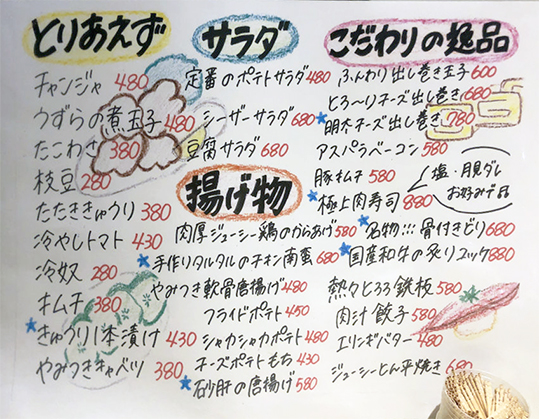 とりあえず
チャンジャ 480
うずらの煮玉子 480
たこわさ 380
枝豆 280
たたききゅうり 380
冷やしトマト 430
冷奴 280
キムチ 380
きゅうり1本漬け 430
やみつきキャベツ 380
サラダ
定番のポテトサラダ 480
シーザーサラダ 680
豆腐サラダ 680
揚げ物
肉厚ジューシー鶏のからあげ 580
手作りタルタルのチキン南蛮 680
やみつき軟骨唐揚げ 480
フライドポテト 450
シャカシャカポテト 480
チーズポテトもち 430
砂肝の唐揚げ 580
こだわりの逸品
ふんわり出し巻き玉子 600
とろ〜りチーズ出し巻き 680
明太チーズ出し巻き 780
アスパラベーコン 580
豚キムチ 580
塩・月見ダレ
お好みで
極上肉寿司 880
名物!!!骨付きどり 680
国産和牛の炙りユッケ 880
熱々とろろ鉄板 580
肉汁餃子 580
エリンギバター 480
ジューシーとん平焼き 680